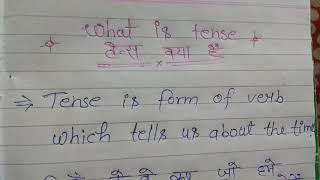 What is tense
टेन्स क्या है
⇒ Tense is form of verb
which tells us about the time